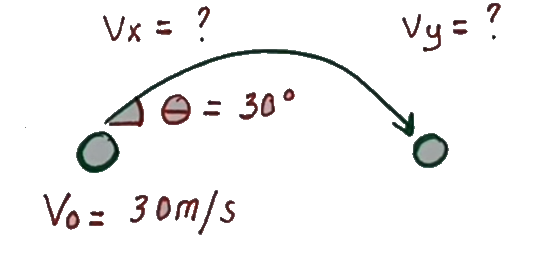 Vx = ?
Vy = ?
θ = 30°
V₀ = 30m/s